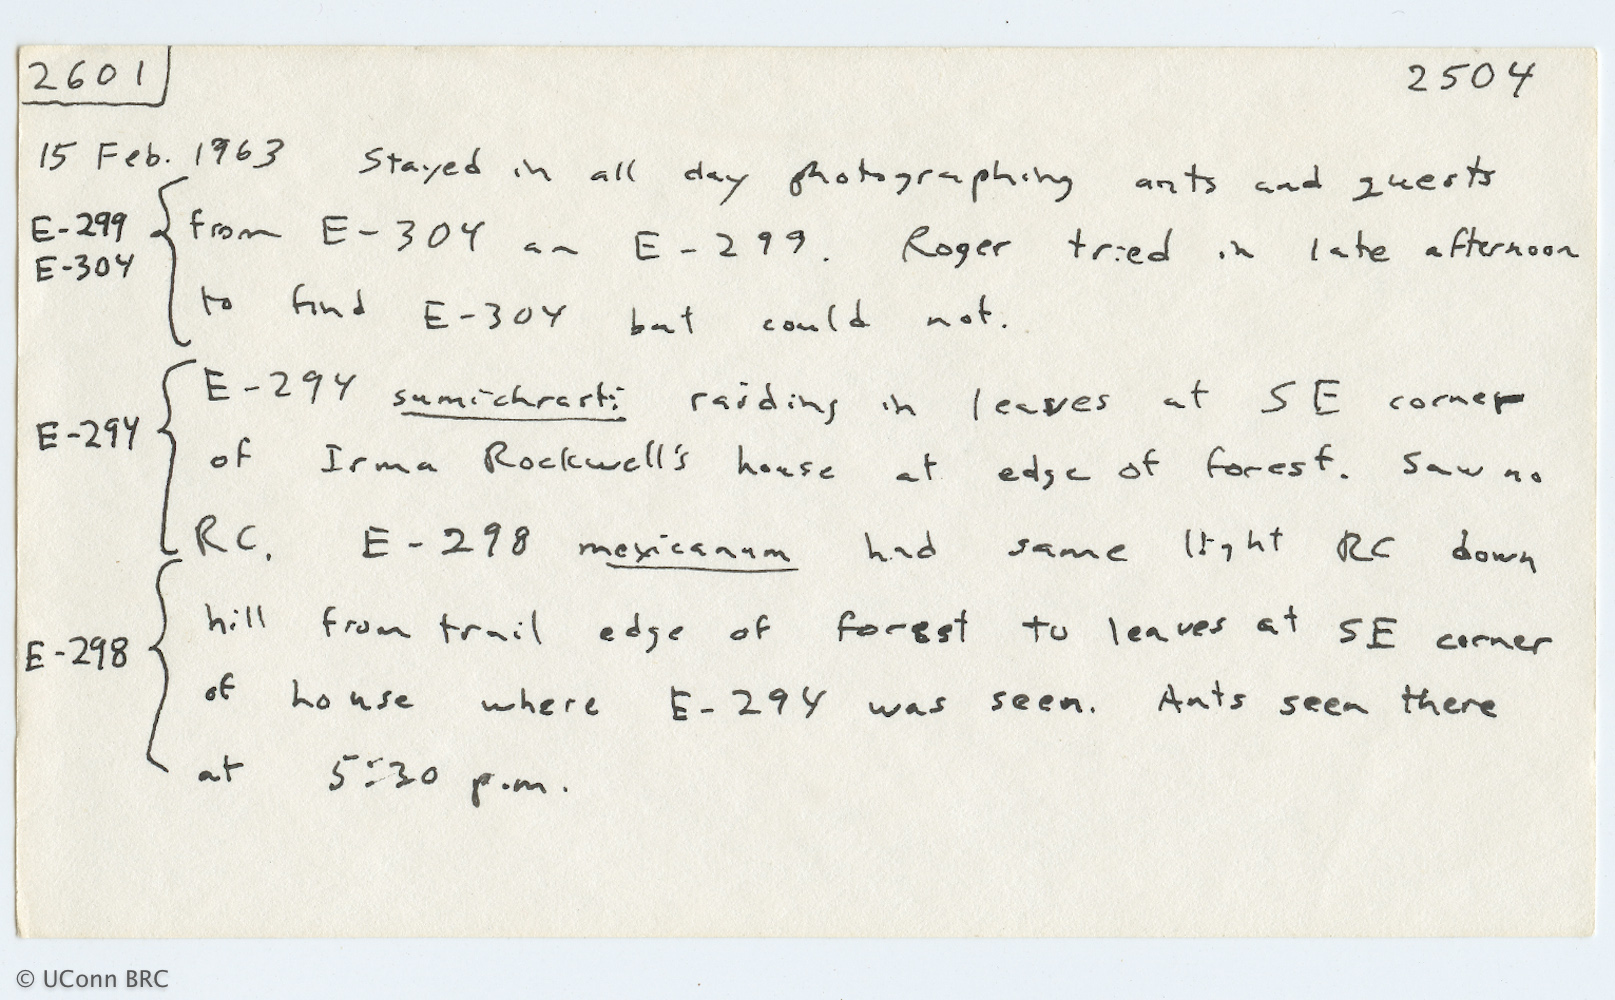 2601
2504
15 Feb. 1963 Stayed in all day photographing ants and guests
E-299
E-304
from E-304 an E-299. Roger tried in late afternoon
to find E-304 but could not.
E-294
E-294 sumichrasti raiding in leaves at SE corner
of Irma Rockwell's house at edge of forest. Saw no
RC. E-298 mexicanum had same light RC down
E-298
hill from trail edge of forest to leaves at SE corner
of house where E-294 was seen. Ants seen there
at 5:30 p.m.
© UConn BRC